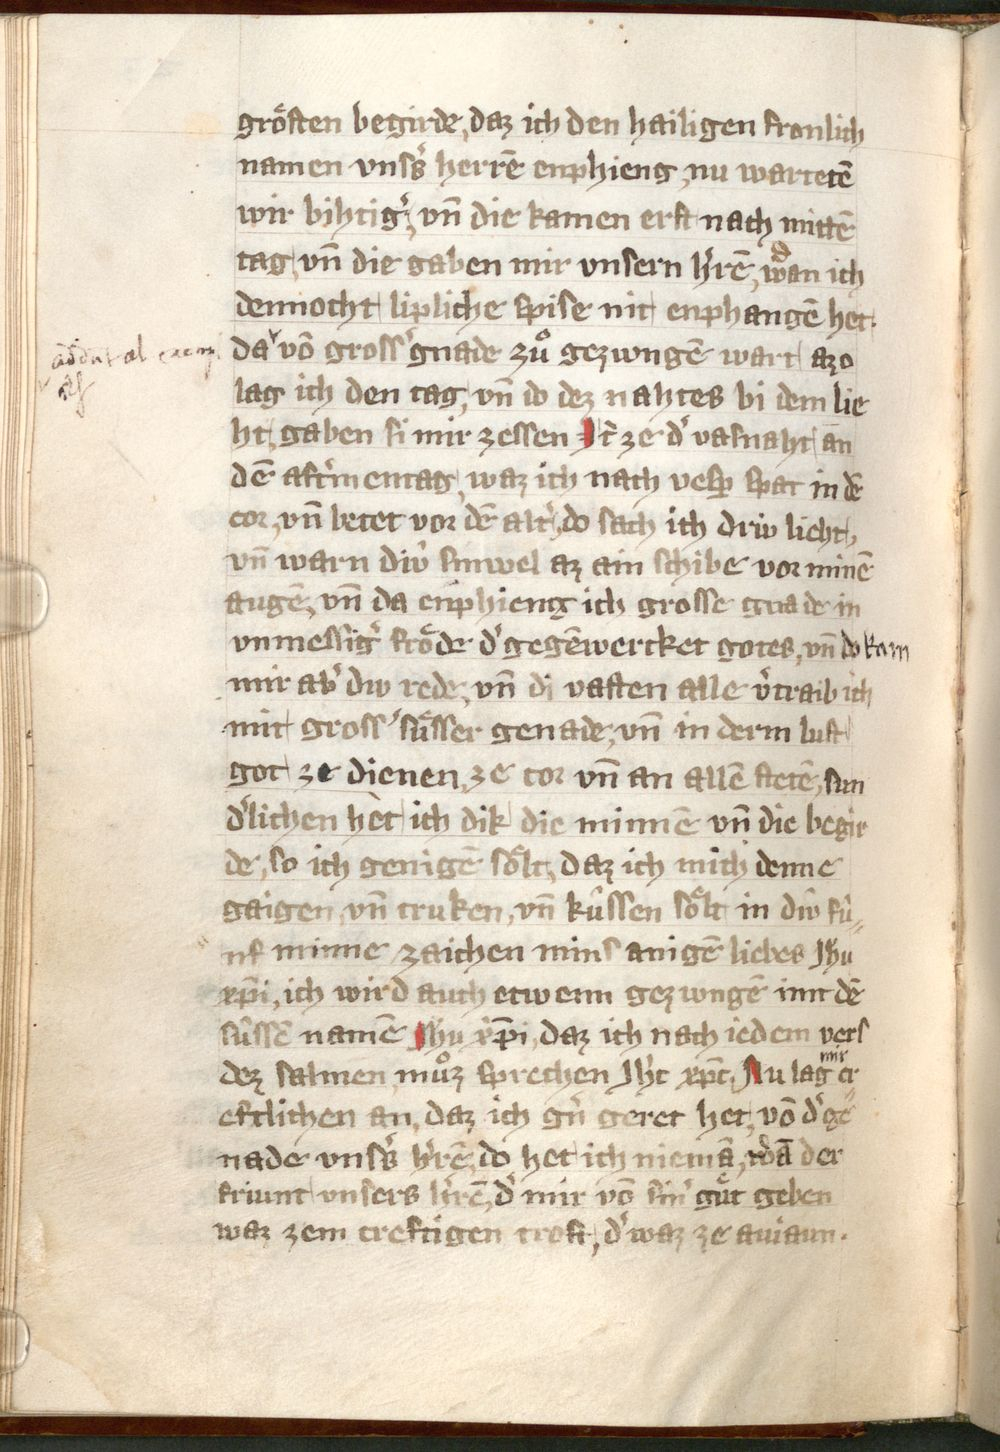 grosten begirde, daz ich den hailigen fronlich
namen vnsers herrē enphieng, nu wartetē
wir bihtiger, vn̄ die kamen erst nach mittē
tag, vn̄ die gaben mir vnsern hrē, wan ich
dennocht lipliche spise nit enphangē het.
da vō gross gnade zuͦ gezwngē wart azo
lag ich den tag, vn̄ do dez nahtes bi dem lie
ht, gaben si mir zessen It̄ ze d' vasnaht an
dē aftermentag, waz ich nach vesp spat in dē
cor, vn̄ betet vor dē alter, do sach ich driv licht,
vn̄ warn div sinwel az ain schibe vor minē
augē, vn̄ da enphieng ich grosse gnade in
vnmessiger froͤde d' gegēwercket gotes, vn̄ do kam
mir ab' div rede, vn̄ di vasten alle v'traib ich
mit gross' suͤsser genade, vn̄ in dem lust
got ze dienen, ze cor vn̄ an allē stetē, sun
d'lichen het ich dik die minnē vn̄ die begir
de, so ich genigē soͤlt, daz ich mich denne
gaigen, vn̄ truken, vn̄ küssen soͤlt in div fü
nf minne zaichen mins anigē liebes Jhu
xp̄i, ich wird auch etwenn gezwngē mit dē
süssē namē Jhu xp̄i, daz ich nach iedem vers
dez salmen muͦz sprechen Jhc xp̄c. Nu lag mir cr
eftlichen an, daz ich gern geret het, vō d' ge
nade vnsers hrē, do het ich niemā, wā der
friunt vnsers hrē, d' mir vō sin' guͤt geben
waz zem creftigen trost, d' waz ze aviaun.